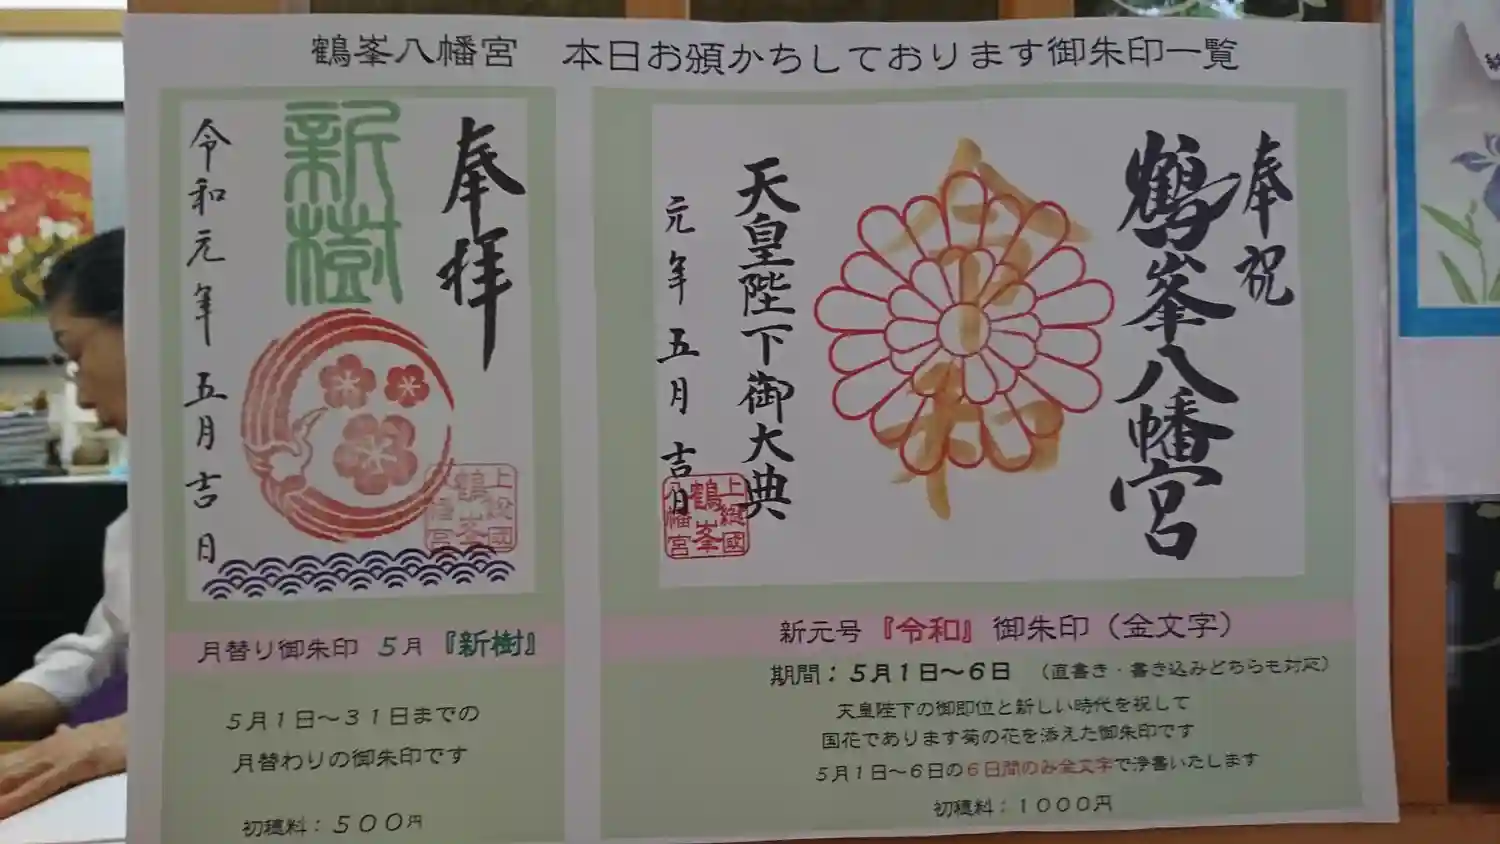 鶴峯八幡宮　本日お頒かちしております御朱印一覧
奉拝
新樹
令和元年 五月吉日
上総國
鶴峯
八幡宮
月替り御朱印 5月『新樹』
5月1日～31日までの
月替わりの御朱印です
初穂料：500円
奉祝
鶴峯八幡宮
令和
天皇陛下御大典
元年 五月吉日
上総國
鶴峯
八幡宮
新元号『令和』御朱印（金文字）
期間：5月1日～6日　（直書き・書き込みどちらも対応）
天皇陛下の御即位と新しい時代を祝して
国花であります菊の花を添えた御朱印です
5月1日～6日の6日間のみ金文字で浄書いたします
初穂料：1000円